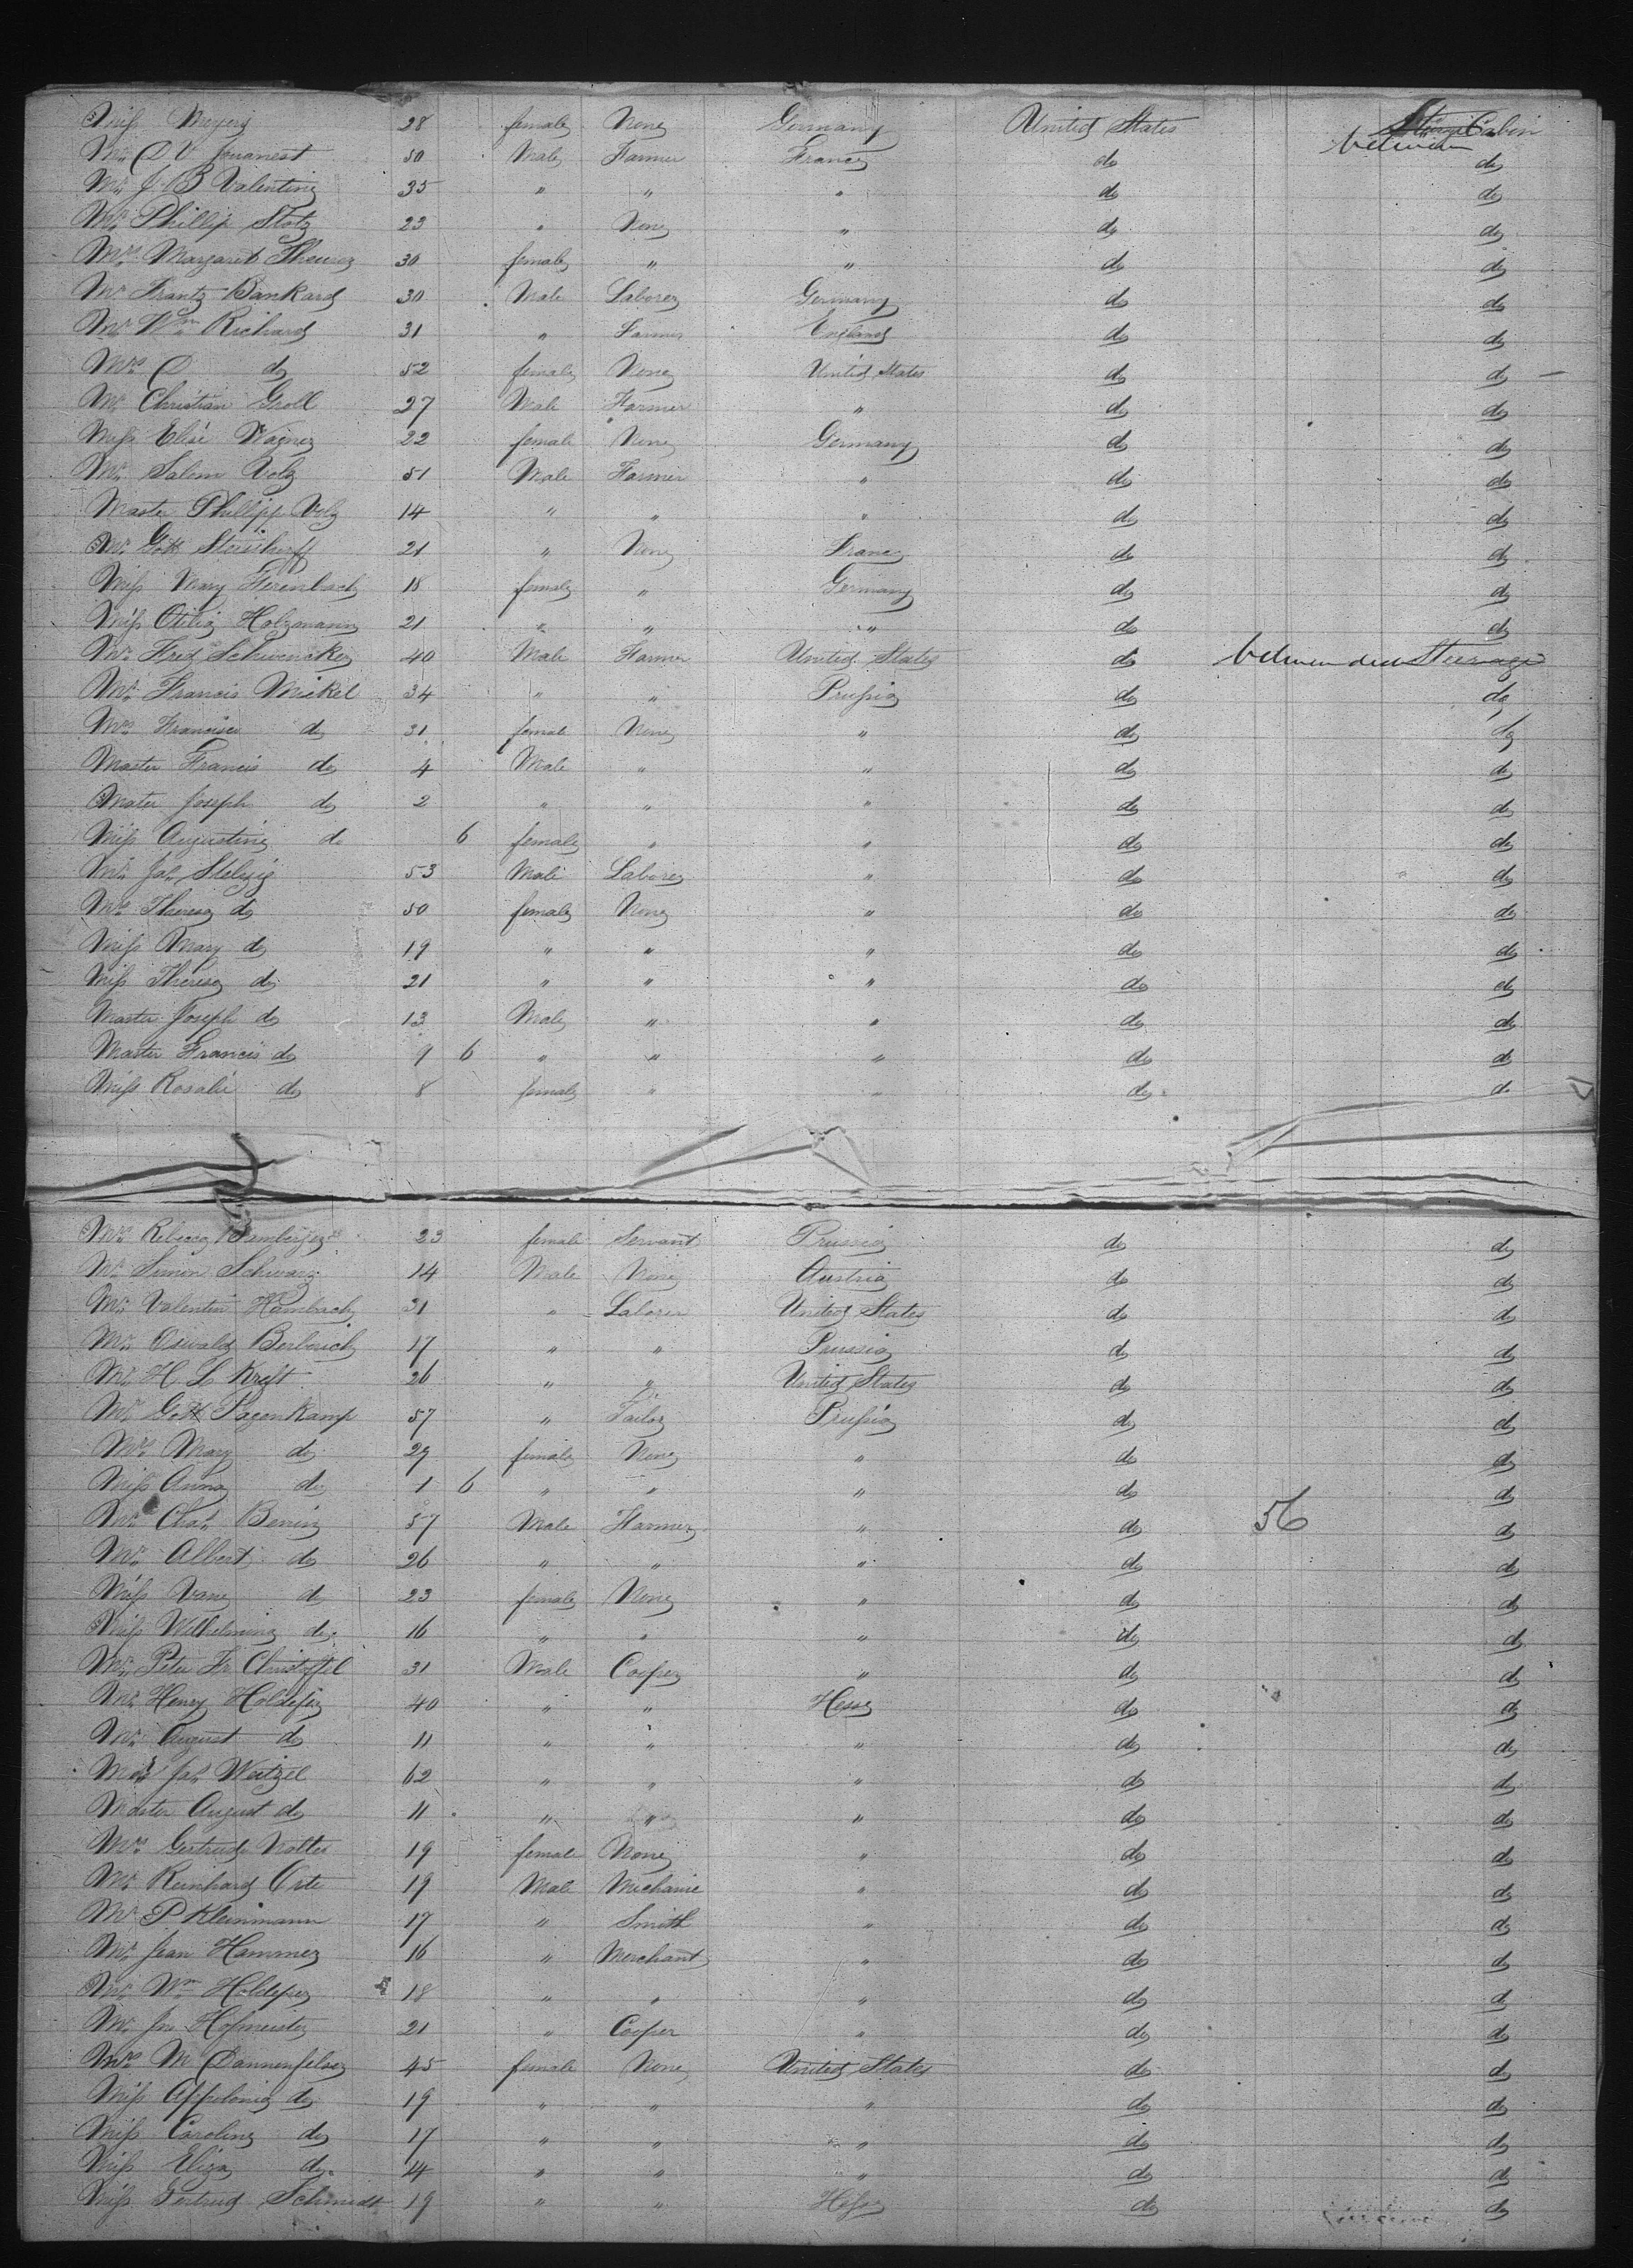 Miss Meyer 28 female None Germany United States between Cabin
Mr D V Jouanest 50 Male Farmer France do do
Mr J. B Valentine 35 " " " do do
Mr Phillip Stotz 23 " None " do do
Mrs Margaret 30 female " " do do
Mr Frantz Bankard 30 Male Laborer Germany do do
Mr Wm Richard 31 " Farmer England do do
Mrs D do 52 female None United States do do
Mr Christian Groll 27 Male Farmer " do do
Miss Elise Wagner 22 female None Germany do do
Mr Salom Volz 51 Male Farmer " do do
Master Phillipp Volz 14 " " " do do
Mr Gott 21 " None France do do
Miss Mary Ferenbach 18 female " Germany do do
Miss Otilia Holzmann 21 " " " do do
Mr Fred Schwencker 40 Male Farmer United States do between deck Steerage
Mr Francis Mikel 34 " " Prussia do do
Mrs Francisca do 31 female None " do do
Master Francis do 4 Male " " do do
Master Joseph do 2 " " " do do
Miss Augustine do 6 female " " do do
Mr Joh Stelzig 53 Male Laborer " do do
Mrs Theresa do 50 female None " do do
Miss Mary do 19 " " " do do
Miss Theresa do 21 " " " do do
Master Joseph do 13 Male " " do do
Master Francis do 9 6 " " " do do
Miss Rosalie do 8 female " " do do
Mrs Rebecca Bamberger 23 female Servant Prussia do do
Mr Simon Schwarz 14 Male None Austria do do
Mr Valentin Hambach 31 " Laborer United States do do
Mr Oswald Berberich 17 " " Prussia do do
Mr H L Kreft 26 " " United States do do
Mr Gott Pagenkamp 57 " Tailor Prussia do do
Mrs Mary do 29 female None " do do
Miss Anna do 1 6 " " " do do
Mr Chas Benin 57 Male Farmer " do 56 do
Mr Albert do 26 " " " do do
Miss do 23 female None " do do
Miss Wilhelmina do 16 " " " do do
Mr Peter Fr Christoffel 31 Male Cooper " do do
Mr Henry Holdefer 40 " " Hesse do do
Mr August do 11 " " " do do
Mr Joh Weitzel 62 " " " do do
Master August do 11 " " " do do
Mrs Gertrude Nolte 19 female None " do do
Mr Reinhard Orte 19 Male Mechanic " do do
Mr P Kleinmann 17 " Smith " do do
Mr Jean Hammer 16 " Merchant " do do
Mr Wm Holdefer 18 " " " do do
Mr Jno Hofmeister 21 " Cooper " do do
Mrs M Dannenfelser 45 female None United States do do
Miss Appolonia do 19 " " " do do
Miss Caroline do 17 " " " do do
Miss Eliza do 14 " " " do do
Miss Gertrud Schmidt 19 " " Hesse do do